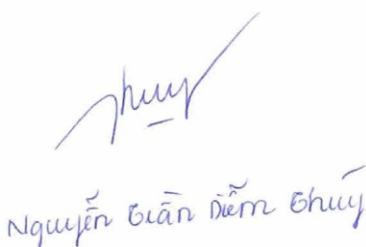 Thuý
Nguyễn Trần Diễm Thuý